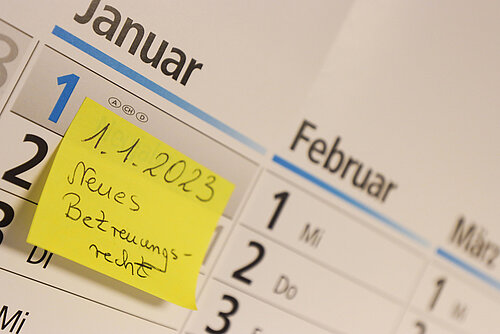 Januar
1
A CH D
2
3
Di
Mi
1.1.2023
Neues
Betreuungs-
recht
Februar
1 Mi
2 Do
3
März
1 M
2